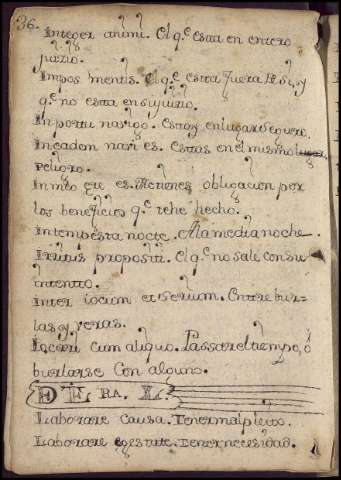 36.
Integer animi. El q.e esta en entero
juizio.
Impos mentis. El q.e esta fuera de si, y
q.e no esta en su juizio.
In portu navigo. Estoy en lugar seguro.
In eadem navi es. Estas en el mismo
peligro.
In meo ere es. Me tienes obligacion por
los beneficios q.e te he hecho.
Intempesta nocte. A la media noche.
Irritus propositi. El q.e no sale con su
intento.
Inter iocum et serium. Entre bur=
las y veras.
Iocari cum aliquo. Passar el tiempo, ó
burlarse con alguno.
DE RA. L.
Laborare causa. Tener mal pleito.
Laborare egestate. Tener necesidad.